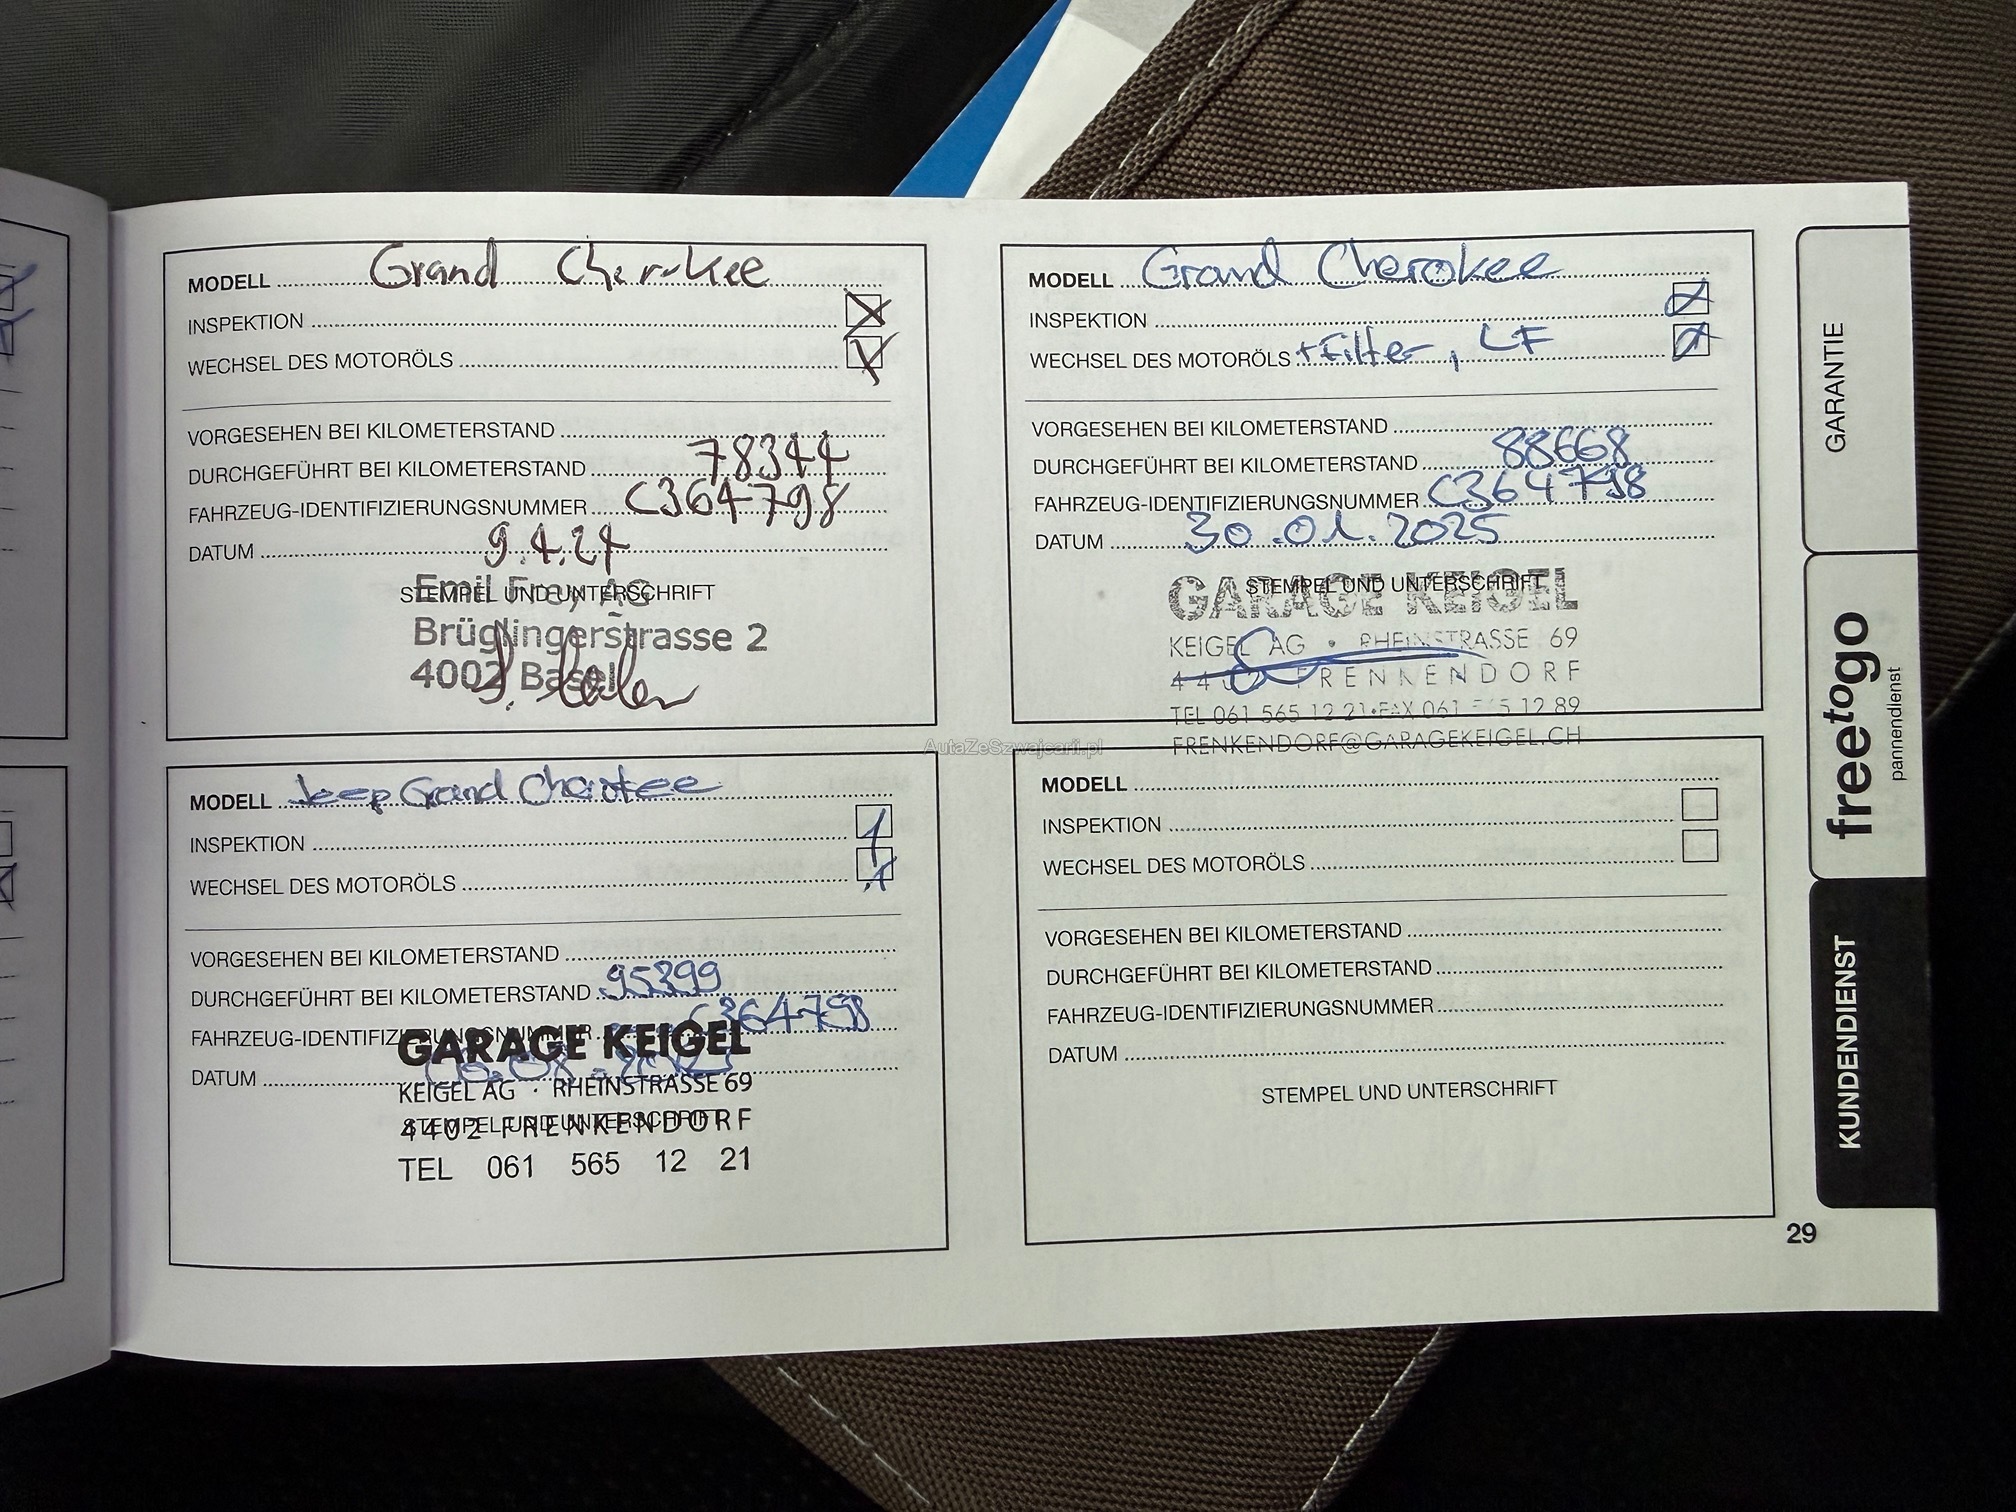 MODELL Grand Cherokee
INSPEKTION
WECHSEL DES MOTORÖLS
VORGESEHEN BEI KILOMETERSTAND
DURCHGEFÜHRT BEI KILOMETERSTAND 78344
FAHRZEUG-IDENTIFIZIERUNGSNUMMER C364798
DATUM 9.4.24
STEMPEL UND UNTERSCHRIFT
Emil Frey AG
Brüglingerstrasse 2
4002 Basel
MODELL Grand Cherokee
INSPEKTION
WECHSEL DES MOTORÖLS + Filter, LF
VORGESEHEN BEI KILOMETERSTAND
DURCHGEFÜHRT BEI KILOMETERSTAND 88668
FAHRZEUG-IDENTIFIZIERUNGSNUMMER C364798
DATUM 30.01.2025
STEMPEL UND UNTERSCHRIFT
GARAGE KEIGEL
KEIGEL AG • RHEINSTRASSE 69
4402 FRENKENDORF
TEL 061 565 12 21•FAX 061 565 12 89
FRENKENDORF@GARAGEKEIGEL.CH
AutaZeSzwajcarii.pl
MODELL Jeep Grand Cherokee
INSPEKTION
WECHSEL DES MOTORÖLS
VORGESEHEN BEI KILOMETERSTAND
DURCHGEFÜHRT BEI KILOMETERSTAND 95399
FAHRZEUG-IDENTIFIZIERUNGSNUMMER C364798
GARAGE KEIGEL
DATUM
KEIGEL AG · RHEINSTRASSE 69
STEMPEL UND UNTERSCHRIFT
4402 FRENKENDORF
TEL 061 565 12 21
MODELL
INSPEKTION
WECHSEL DES MOTORÖLS
VORGESEHEN BEI KILOMETERSTAND
DURCHGEFÜHRT BEI KILOMETERSTAND
FAHRZEUG-IDENTIFIZIERUNGSNUMMER
DATUM
STEMPEL UND UNTERSCHRIFT
GARANTIE
freetogo
pannendienst
KUNDENDIENST
29